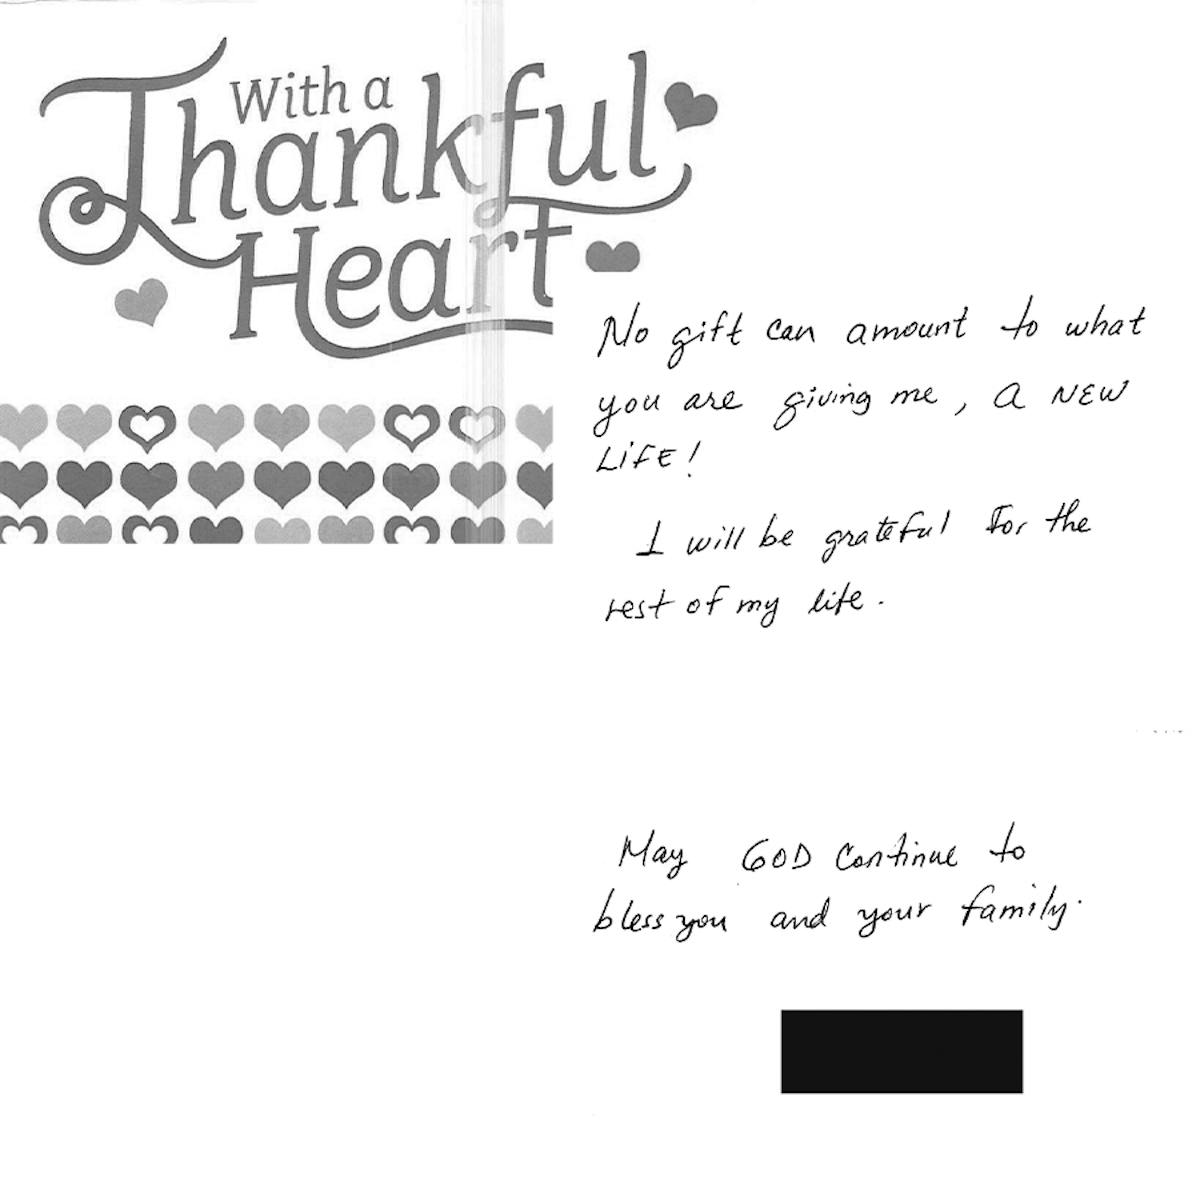 With a
Thankful
Heart
No gift can amount to what
you are giving me, A NEW
LIFE!
I will be grateful for the
rest of my life.
May GOD Continue to
bless you and your family.